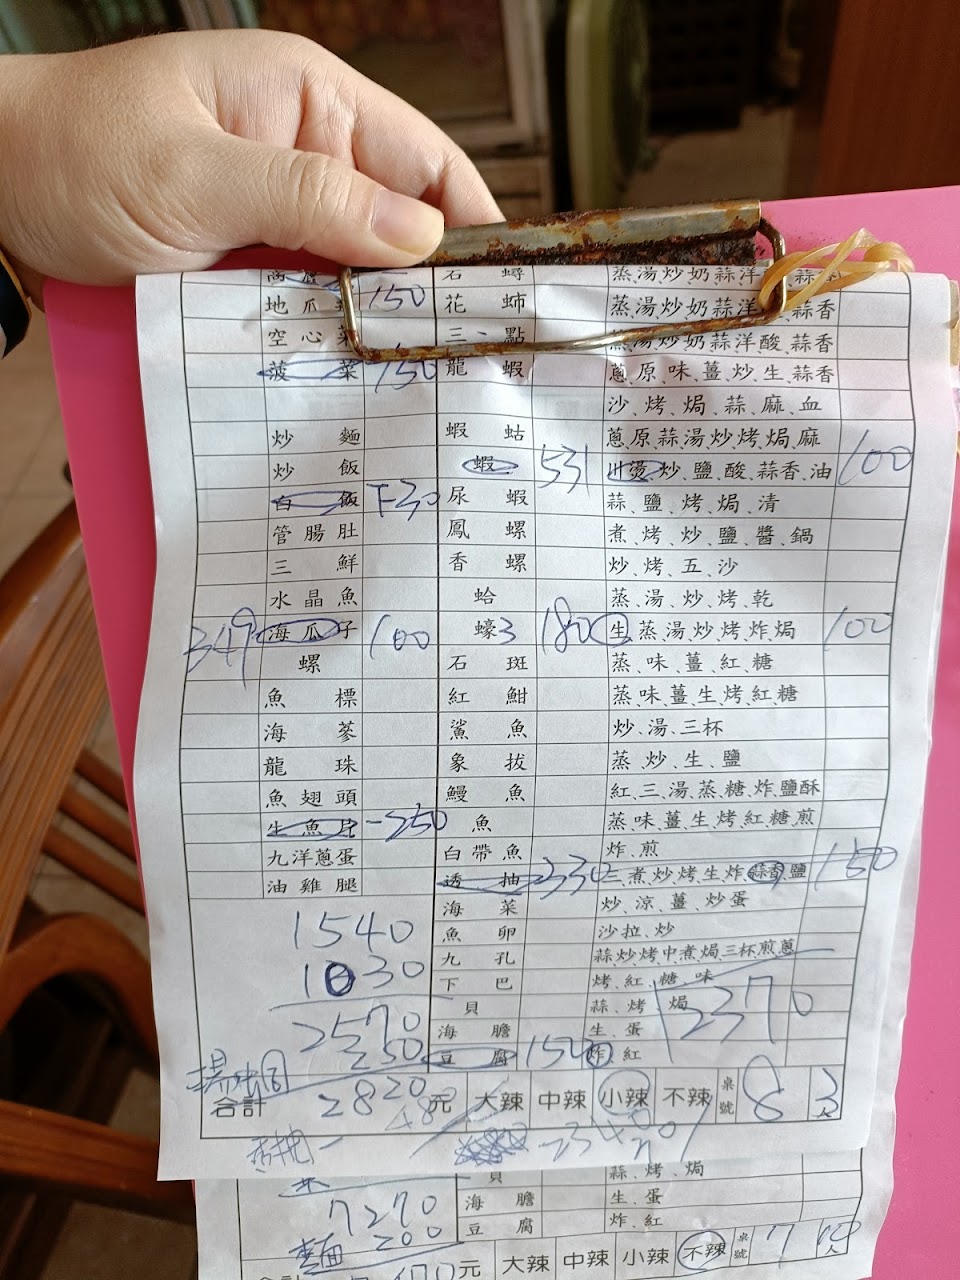 石 蟳 蒸、湯、炒、奶、蒜、洋
地瓜 150 花 蛳 蒸、湯、炒、奶、蒜、洋、蒜香
空心菜 三 點 蒸、湯、炒、奶、蒜、洋、酸、蒜香
菠 菜 150 龍 蝦 蔥、原、味、薑、炒、生、蒜香
沙、烤、焗、蒜、麻、血
炒 麵 蝦 蛄 蔥、原、蒜、湯、炒、烤、焗、麻
炒 飯 蝦 531 川燙、炒、鹽、酸、蒜香、油 100
白 飯 下30 尿 蝦 蒜、鹽、烤、焗、清
管腸肚 鳳 螺 煮、烤、炒、鹽、醬、鍋
三 鮮 香 螺 炒、烤、五、沙
水晶魚 蛤 蒸、湯、炒、烤、乾
349 海瓜子 100 蠔 3 180 生、蒸、湯、炒、烤、炸、焗 100
螺 石 斑 蒸、味、薑、紅、糖
魚 標 紅 魽 蒸、味、薑、生、烤、紅、糖
海 蔘 鯊 魚 炒、湯、三杯
龍 珠 象 拔 蒸、炒、生、鹽
魚翅頭 鰻 魚 紅、三、湯、蒸、糖、炸、鹽酥
生魚片 -250 魚 蒸、味、薑、生、烤、紅、糖、煎
九洋蔥蛋 白帶魚 炸、煎
油雞腿 透 抽 330 三、煮、炒、烤、生、炸、蒜香、鹽 150
海 菜 炒、涼、薑、炒蛋
1540 魚 卵 沙拉、炒
九 孔 蒜、炒、烤、中、煮、焗、三杯、煎、蔥
1030 下 巴 烤、紅、糖、味
貝 蒜、烤、焗 2370
2570 海 膽 生、蛋
250 豆 腐 150 炸、紅
合計 2820 元 大辣 中辣 小辣 不辣 桌號 8 3人
2340
貝 蒜、烤、焗
海 膽 生、蛋
7270 豆 腐 炸、紅
麵 200
元 大辣 中辣 小辣 不辣 桌號 7 10人